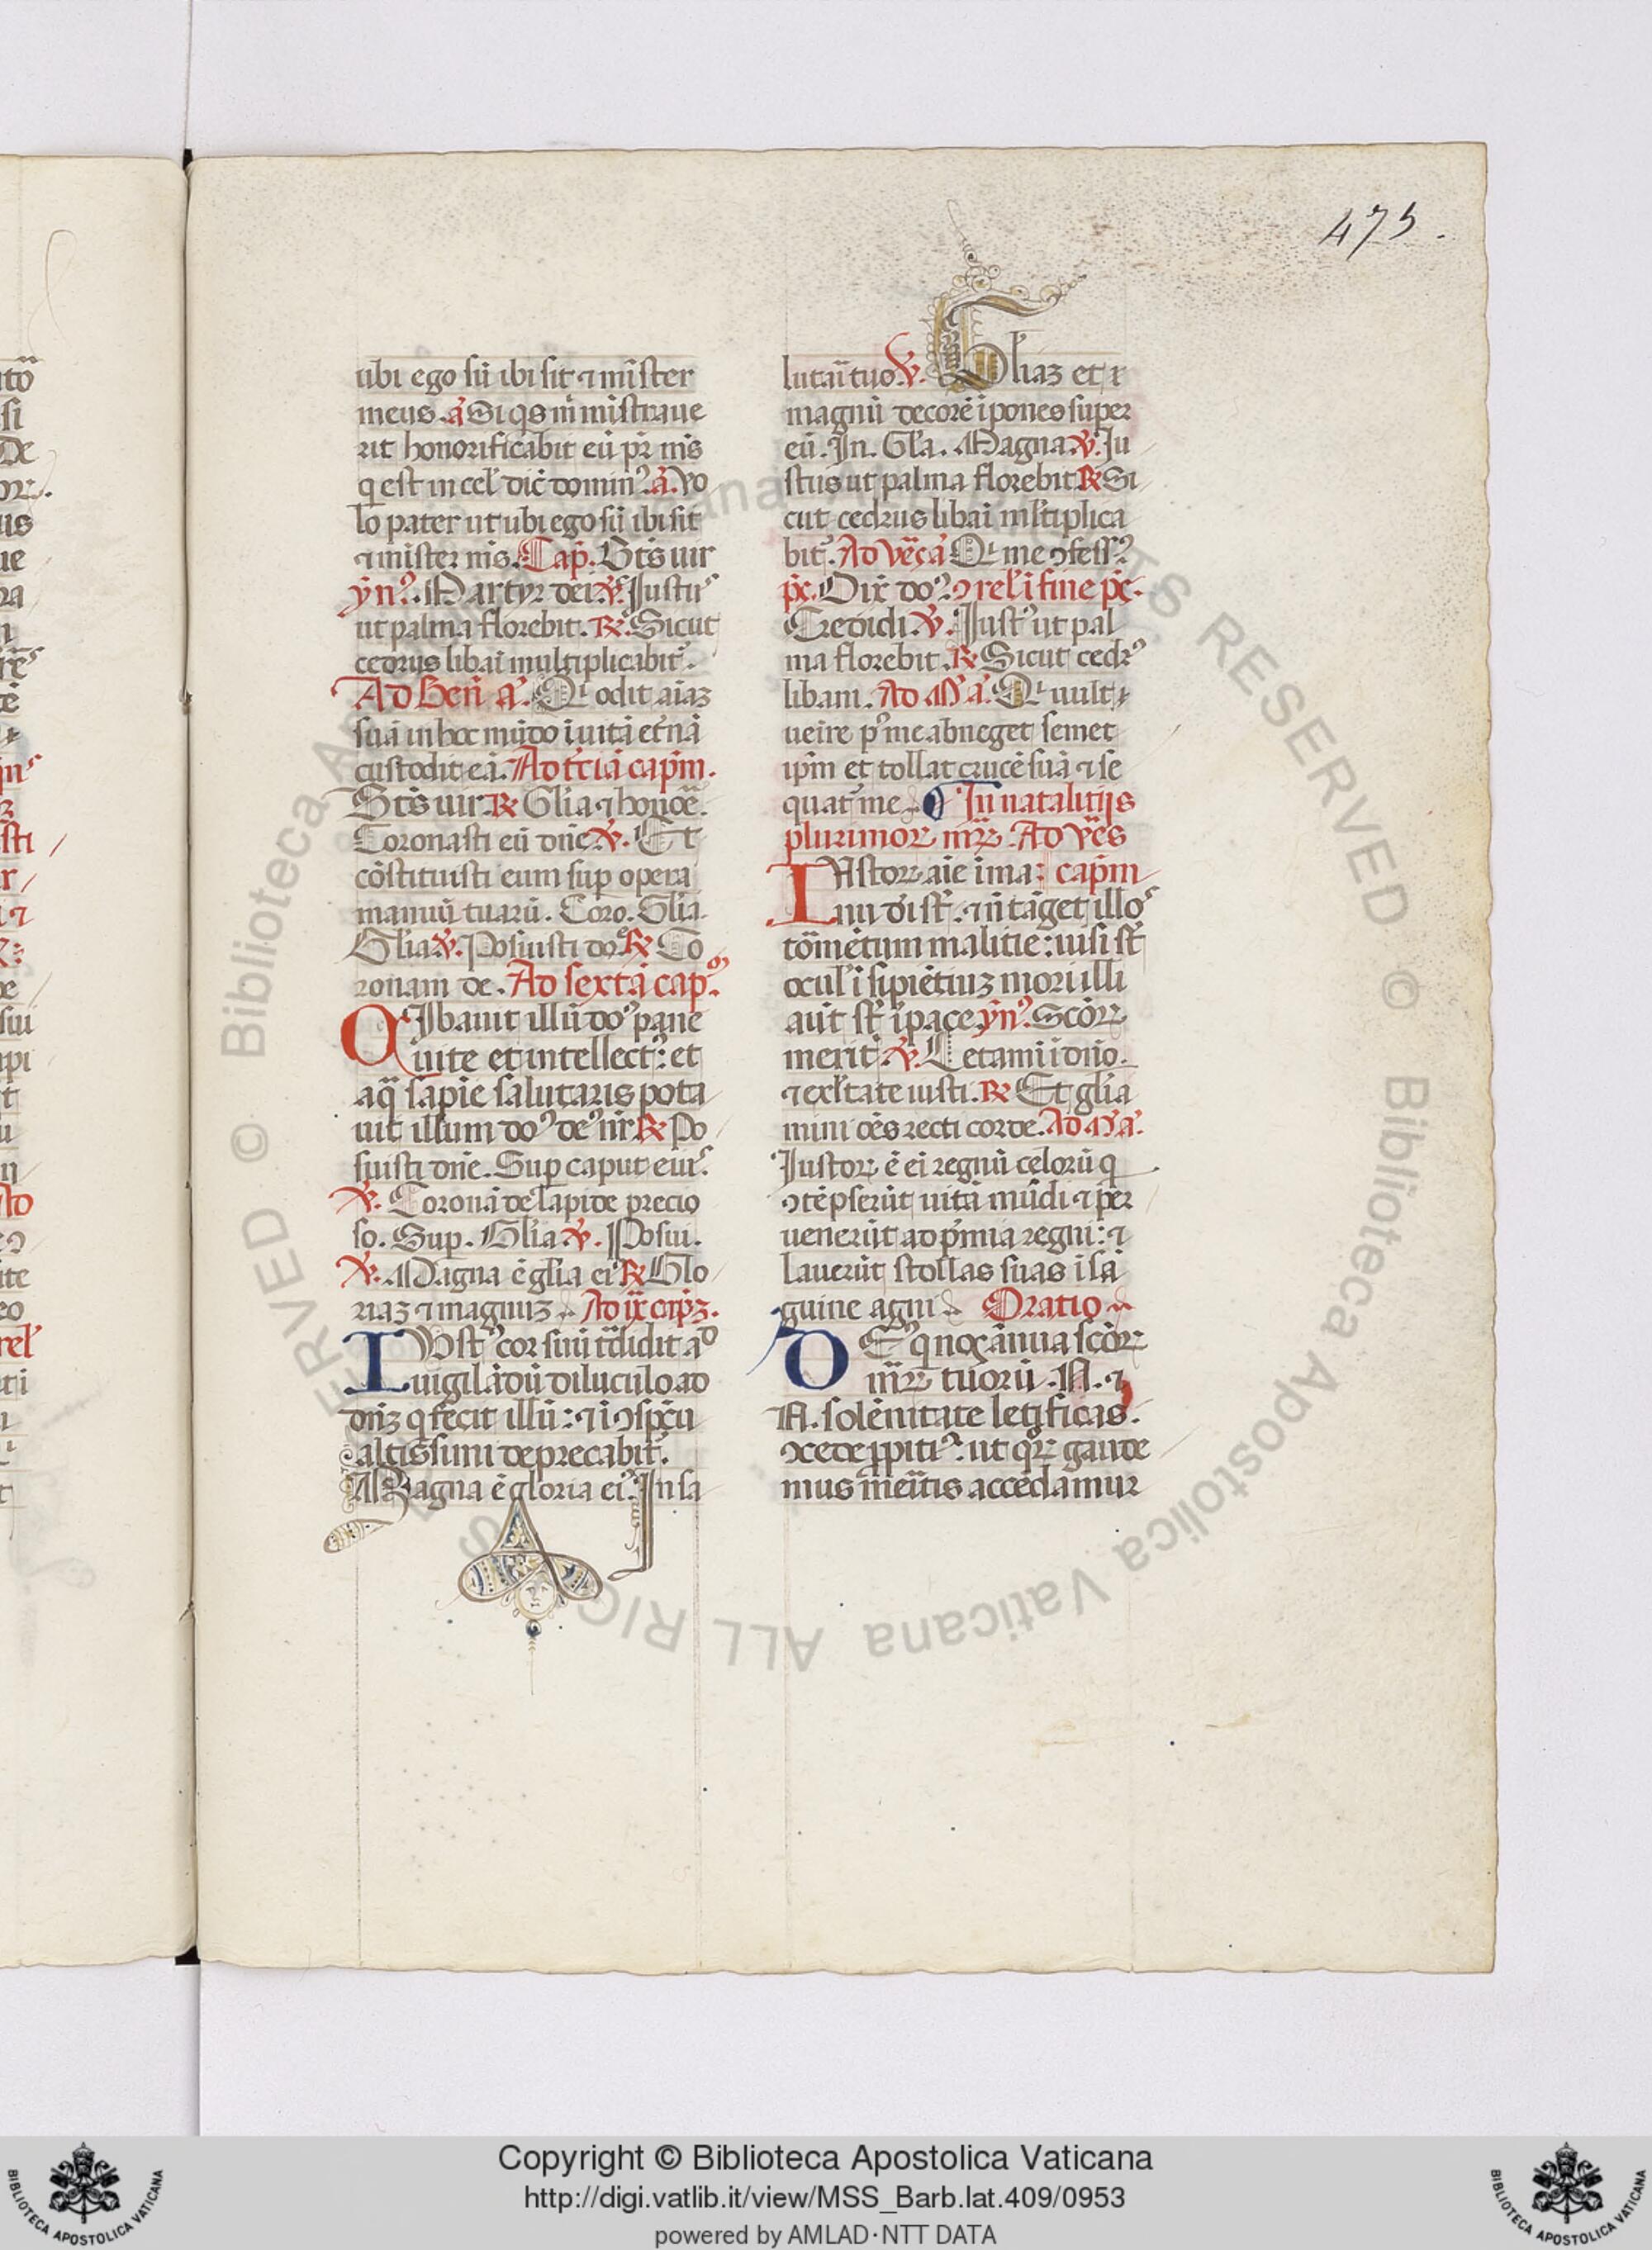 475.
ubi ego sū ibi sit ⁊ mīster
meus. ā Si qs m̄ mīstraue
rit honorificabit eū pr̄ ms̄
q est in cel̄ dic̄ domin⁹. ā. Vo
lo pater ut ubi ego sū ibi sit
⁊ mister ms̄. Cap̄. Bt̄s uir
yn̄⁹. Martyr dei. ꝟ. Iustus
ut palma florebit. ℞. Sicut
cedrus libai multiplicabit᷑.
Ad Ben̄ a᷑. Qi odit aīaz
suā in hoc mūdo ī uitā et̄nā
custodit eā. Ad tt̄iā capm̄.
Bt̄s uir. ℞ Glia ⁊ honoē.
Coronasti eū dn̄e. ꝟ. Et
cōstituisti eum sup̄ opera
manuū tuarū. Coro. Glia.
Glia ꝟ. Posuisti do⁹ ℞ Co
ronam de. Ad sextā cap⁹.
CIbauit illū do⁹ pane
uite et intellect⁹: et
aq̄ sapīe salutaris pota
uit illum do⁹ de⁹ nr̄ ℞ Po
suisti dn̄e. Sup caput eius.
ꝟ. Coronā de lapide precio
so. Sup. Glia ꝟ. Posui.
ꝟ. Magna ē glia ei⁹ ℞ Glo
riaz ⁊ magnuz Ad ix capz̄.
IVst⁹ cor suū tradidit ad
uigilādū diluculo ad
dn̄z q fecit illū: ⁊ ī ↄspc̄u
altissimi deprecabit᷑.
Magna ē gloria ei⁹. In sa
lutari tuo. ꝟ. Gliaz et
magnū decorē ipones super
eū. In. Gl̄a. Magna ꝟ. Iu
stus ut palma florebit ℞ Si
cut cedrus libai ml̄tiplica
bit᷑. Ad ve᷑s ā Qi me ↄfess⁹
ps̄. Dix̄ do⁹. ↄ rel̄ ī fine ps̄.
Credidi. ꝟ. Iust⁹ ut pal
ma florebit. ℞ Sicut cedr⁹
libani. Ad M̄ ā. Qi uult
ueire p⁹ me abneget semet
ipm̄ et tollat crucē suā ⁊ se
quat᷑ me In natalitijs
plurimoꝝ mr̄ꝝ. Ad ve᷑s
IVstoꝝ aīe ī ma: capm̄
nu dī st̄. ⁊ n̄ tāget illos
tōmētum malitie: uisi st̄
ocul̄ īsipiētiuz mori illi
aūt st̄ ī pace yn̄⁹. Scōꝝ
merit̄ ꝟ. Letamī ī dn̄o.
⁊ exl̄tate iusti. ℞ Et glia
mini oēs recti corde. Ad M̄ ā.
Iustoꝝ ē ei regnū celorū q
ↄtēpserūt uitā mūdi ⁊ per
uenerūt ad p̄mia regni: ⁊
lauerūt stollas suas ī sā
guine agni Oratio
DE⁹ q nos ānua scōꝝ
mr̄ꝝ tuorū. N. ⁊
N. solēnitate letificas.
ↄcede ꝓpiti⁹. ut qꝝ gaude
mus mēitis accēdamur
Copyright © Biblioteca Apostolica Vaticana
http://digi.vatlib.it/view/MSS_Barb.lat.409/0953
powered by AMLAD·NTT DATA